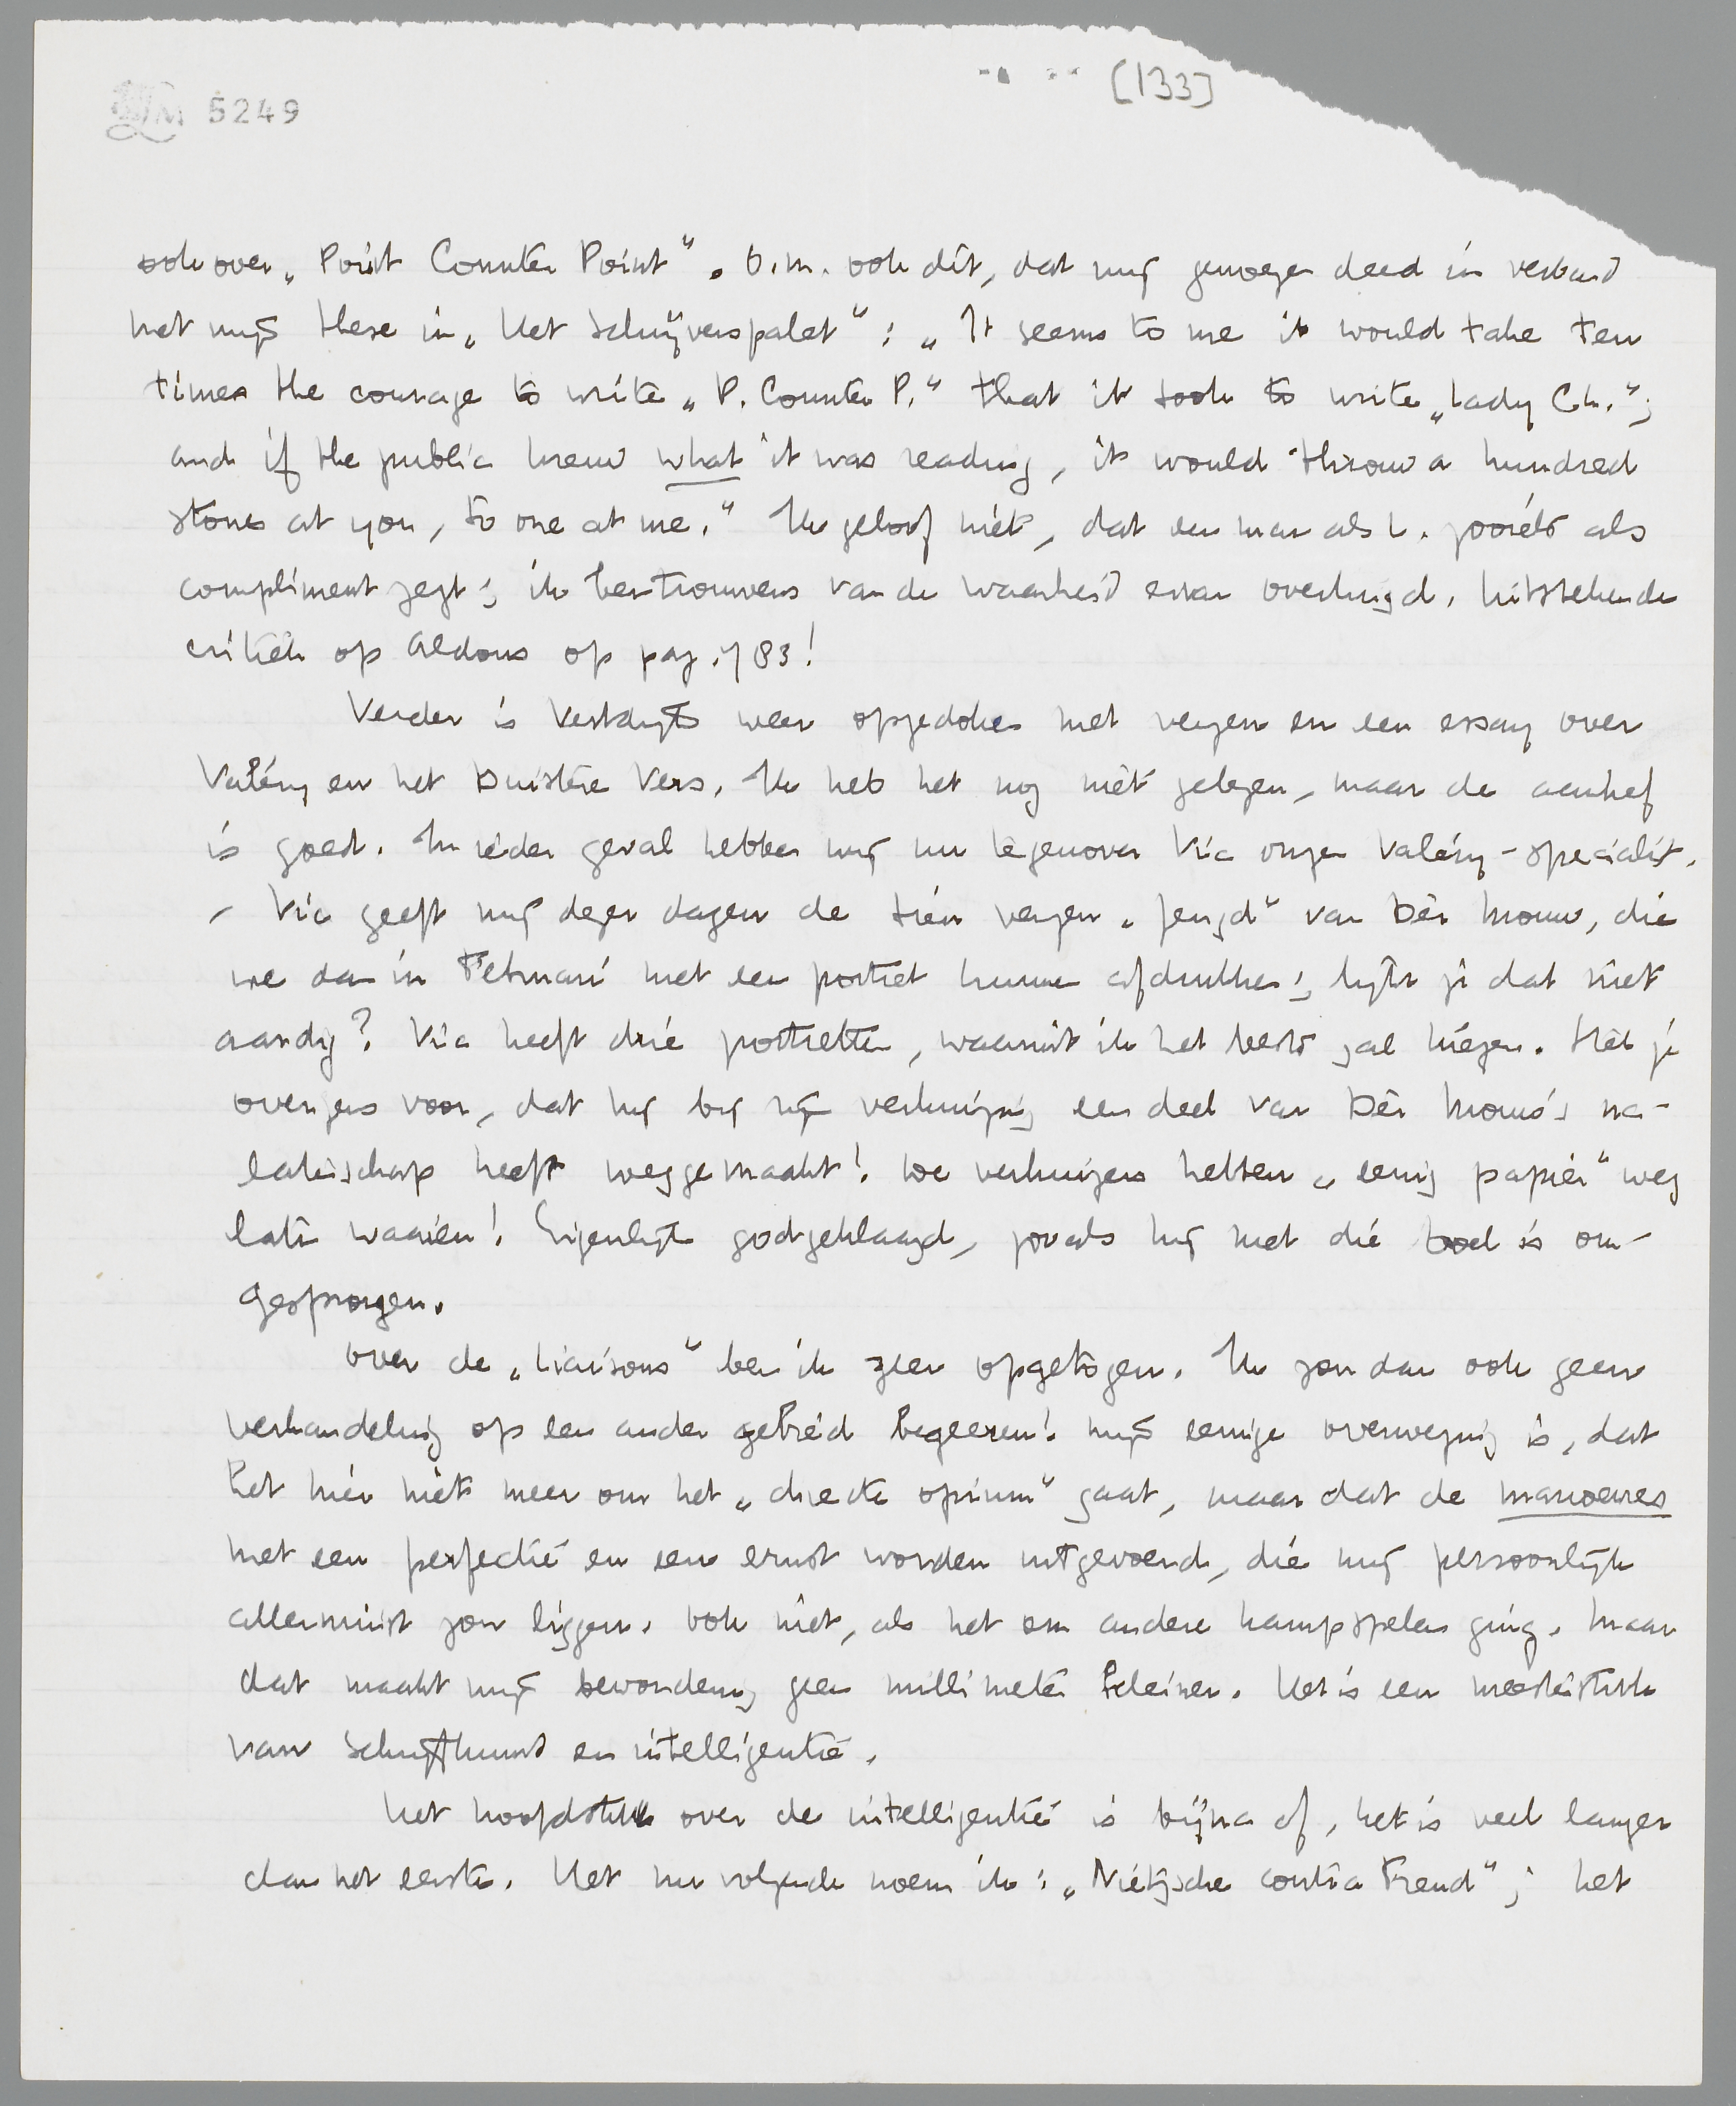 [133]
LM 5249
ook over „Point Counter Point". O.m. ook dit, dat mij genoegen deed in verband
met mijn these in „Het Schrijverspalet": „It seems to me it would take ten
times the courage to write „P. Counter P." that it took to write „Lady Ch.";
and if the public knew what it was reading, it would throw a hundred
stones at you, to one at me." Ik geloof niet, dat een man als L. zooiets als
compliment zegt; ik ben trouwens van de waarheid ervan overtuigd. Uitstekende
critiek op Aldous op pag. 783!
Verder is Vestdijk weer opgedoken met verzen en een essay over
Valéry en het Duistere Vers. Ik heb het nog niet gelezen, maar de aanhef
is goed. In ieder geval hebben wij nu tegenover Vic onzen Valéry-specialist.
– Vic geeft mij dezer dagen de tien verzen „Jeugd" van Dèr Mouw, die
we dan in Februari met een portret kunnen afdrukken; lijkt je dat niet
aardig? Vic heeft drie portretten, waaruit ik het beste zal kiezen. Stel je
overigens voor, dat hij bij zijn verhuizing een deel van Dèr Mouw's na-
latenschap heeft weggemaakt! De verhuizers hebben „eenig papier" weg
laten waaien! Eigenlijk godgeklaagd, zooals hij met die boel is om-
gesprongen.
Over de „Liaisons" ben ik zeer opgetogen. Ik zou dan ook geen
verhandeling op een ander gebied begeeren! Mijn eenige overweging is, dat
het hier niet meer om het „directe opium" gaat, maar dat de manoeuvres
met een perfectie en een ernst worden uitgevoerd, die mij persoonlijk
allerminst zou liggen. Ook niet, als het om andere kampspelen ging. Maar
dat maakt mijn bewondering geen millimeter kleiner. Het is een meesterstuk
van schrijfkunst en intelligentie.
Het hoofdstuk over de intelligentie is bijna af, het is veel langer
dan het eerste. Het nu volgende noem ik: „Nietzsche contra Freud"; het